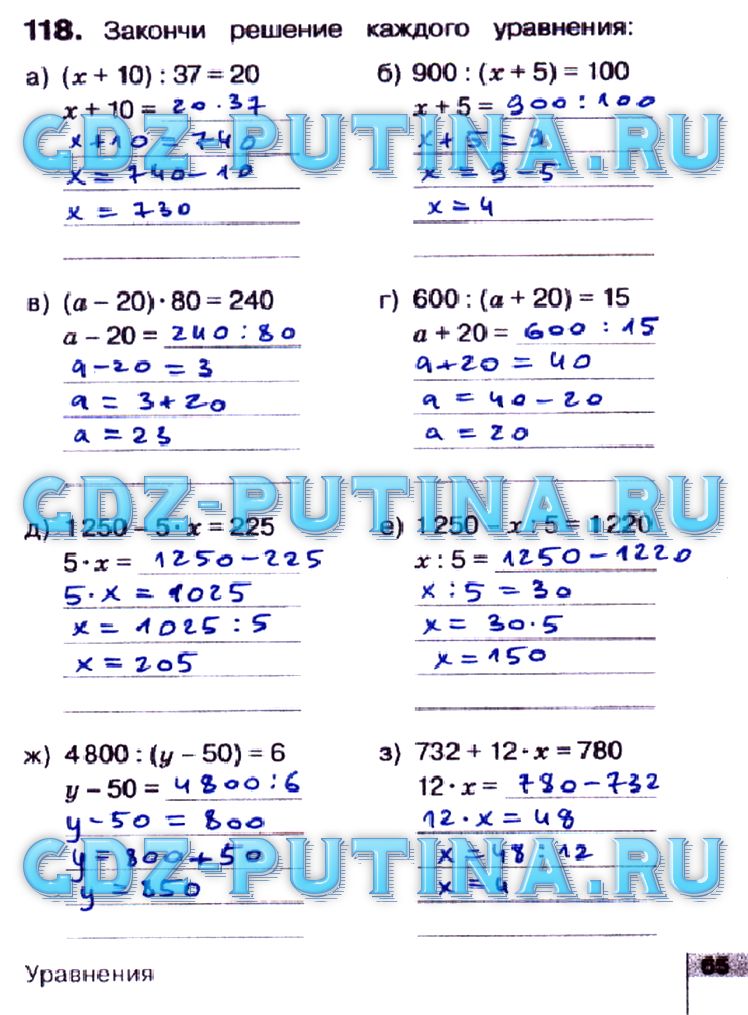 118. Закончи решение каждого уравнения:
а) (x + 10) : 37 = 20
x + 10 = 20 · 37
x + 10 = 740
x = 740 - 10
x = 730
б) 900 : (x + 5) = 100
x + 5 = 900 : 100
x + 5 = 9
x = 9 - 5
x = 4
GDZ-PUTINA.RU
в) (a – 20) · 80 = 240
a – 20 = 240 : 80
a - 20 = 3
a = 3 + 20
a = 23
г) 600 : (a + 20) = 15
a + 20 = 600 : 15
a + 20 = 40
a = 40 - 20
a = 20
GDZ-PUTINA.RU
д) 1 250 – 5 · x = 225
5 · x = 1250 - 225
5 · x = 1025
x = 1025 : 5
x = 205
е) 1 250 – x : 5 = 1 220
x : 5 = 1250 - 1220
x : 5 = 30
x = 30 · 5
x = 150
ж) 4 800 : (y – 50) = 6
y – 50 = 4800 : 6
y - 50 = 800
y = 800 + 50
y = 850
з) 732 + 12 · x = 780
12 · x = 780 - 732
12 · x = 48
x = 48 : 12
x = 4
GDZ-PUTINA.RU
Уравнения
65